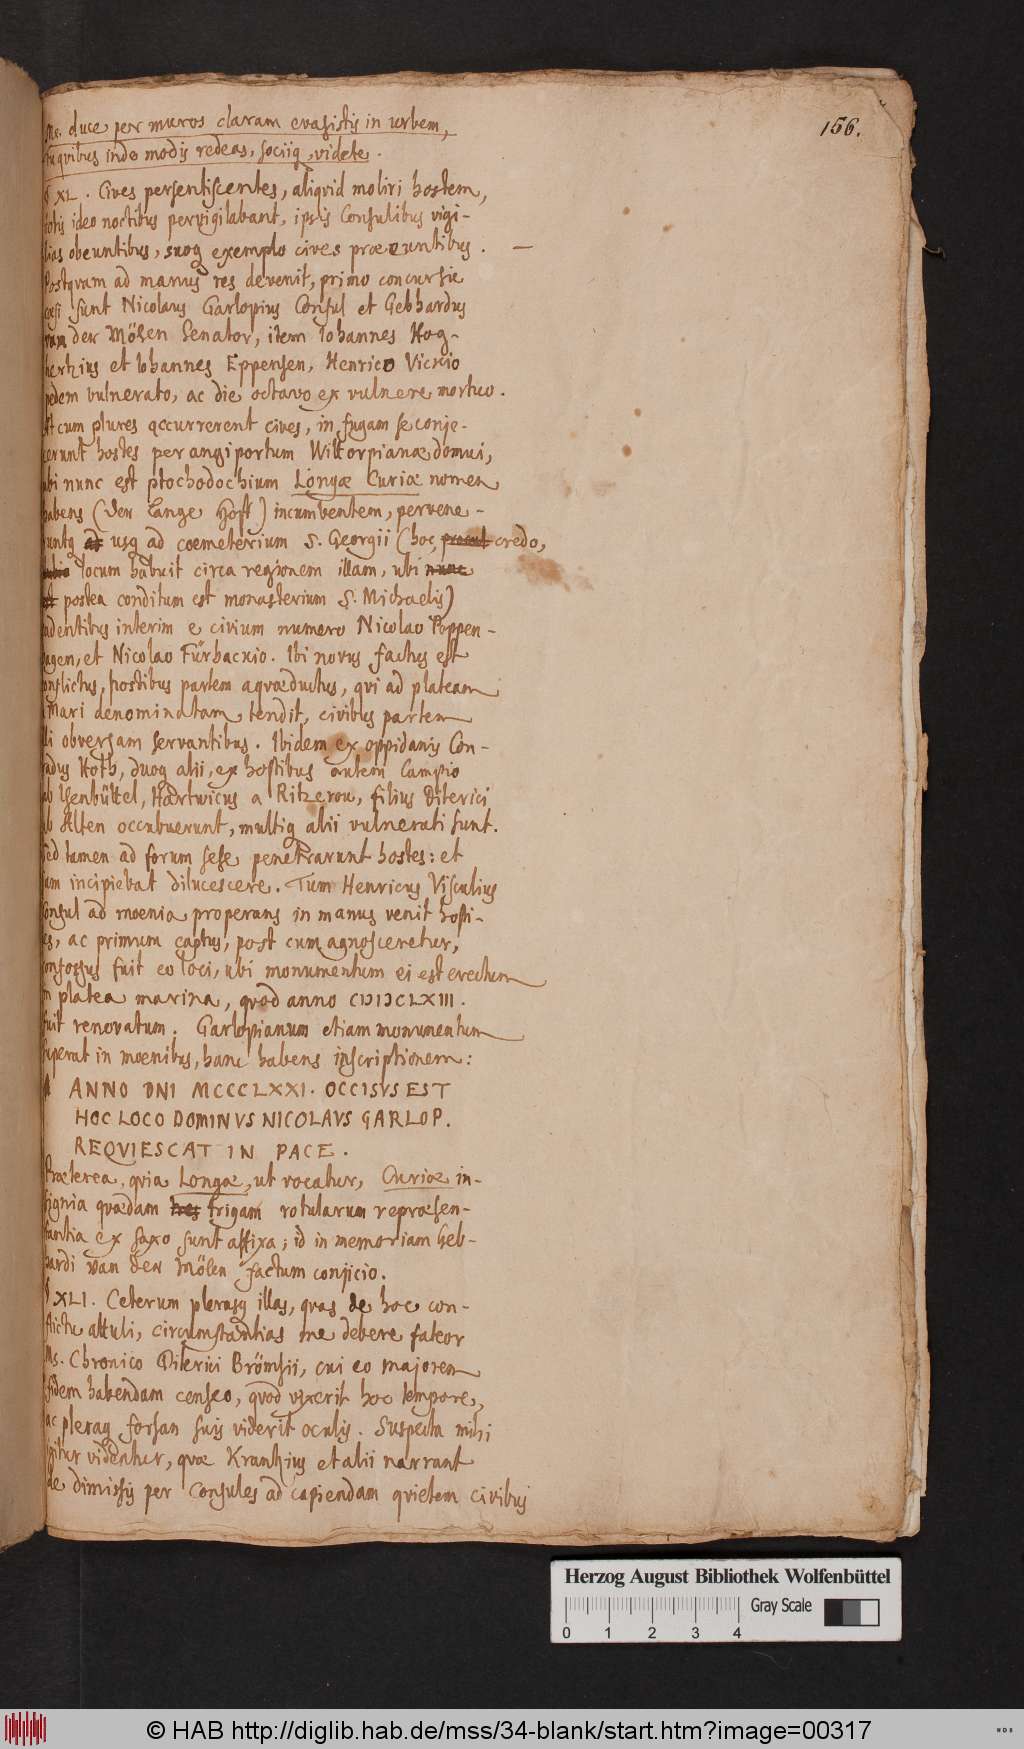 156.
Me duce per muros claram evasistis in urbem,
Tu quibus inde modis redeas, sociiq, videte.
§ XL. Cives persentiscentes, aliqvid moliri hostem,
totis ideo noctibus pervigilabant, ipsis Consulibus vigi-
lias obeuntibus, suoq exemplo cives præeuntibus. —
Postqvam ad manus res devenit, primo concursu
cæsi sunt Nicolaus Garlopius Consul et Gebhardus
van der Mölen Senator, item Iohannes Hog-
hertzius et Iohannes Eppensen, Henrico Vickio
pedem vulnerato, ac die octavo ex vulnere mortuo.
At cum plures occurrerent cives, in fugam se conje-
cerunt hostes per angiportum Wittorpianæ domui,
ubi nunc est ptochodochium Longæ Curiæ nomen
habens (Der Lange Hoft) incumbentem, pervene-
runtq usq ad coemeterium S. Georgii (hoc, credo,
locum habuit circa regionem illam, ubi nunc
est postea conditum est monasterium S. Michaelis)
cadentibus interim e civium numero Nicolao Poppen-
hagen, et Nicolao Fürhackio. Ibi novus factus est
conflictus, hostibus partem aqvæductus, qvi ad plateam
a Mari denominatam tendit, civibus partem
illi obversam servantibus. Ibidem ex oppidanis Con-
radus Koth, duoq alii, ex hostibus autem Campio
ab Ysenbüttel, Hartwicus a Ritzerou, filius Diterici
ab Alten occubuerunt, multiq alii vulnerati sunt.
Sed tamen ad forum sese penetrarunt hostes: et
jam incipiebat dilucescere. Tum Henricus Visculius
Consul ad moenia properans in manus venit hosti-
les, ac primum captus, post cum agnosceretur,
confossus fuit eo loci, ubi monumentum ei est erectum
in platea marina, qvod anno CIƆIƆCLXIII.
fuit renovatum. Garlopianum etiam monumentum
superat in moenibus, hanc habens inscriptionem:
ANNO DNI MCCCLXXI. OCCISVS EST
HOC LOCO DOMINVS NICOLAVS GARLOP.
REQVIESCAT IN PACE.
Præterea, qvia Longæ, ut vocatur, Curiæ in-
signia qvædam tres trigam rotularum repræsen-
tantia ex saxo sunt affixa; id in memoriam Geb-
hardi van der Mölen factum conjicio.
§ XLI. Ceterum plerasq illas, qvas de hoc con-
flictu attuli, circumstantias me debere fateor
Ms. Chronico Diterici Brömsii, cui eo majorem
fidem habendam censeo, qvod vixerit hoc tempore,
ac pleraq forsan suis viderit oculis. Suspecta mihi
igitur videntur, qvæ Krantzius et alii narrant
de dimissis per Consules ad capiendam qvietem civibus
Herzog August Bibliothek Wolfenbüttel
Gray Scale
0 1 2 3 4
© HAB http://diglib.hab.de/mss/34-blank/start.htm?image=00317